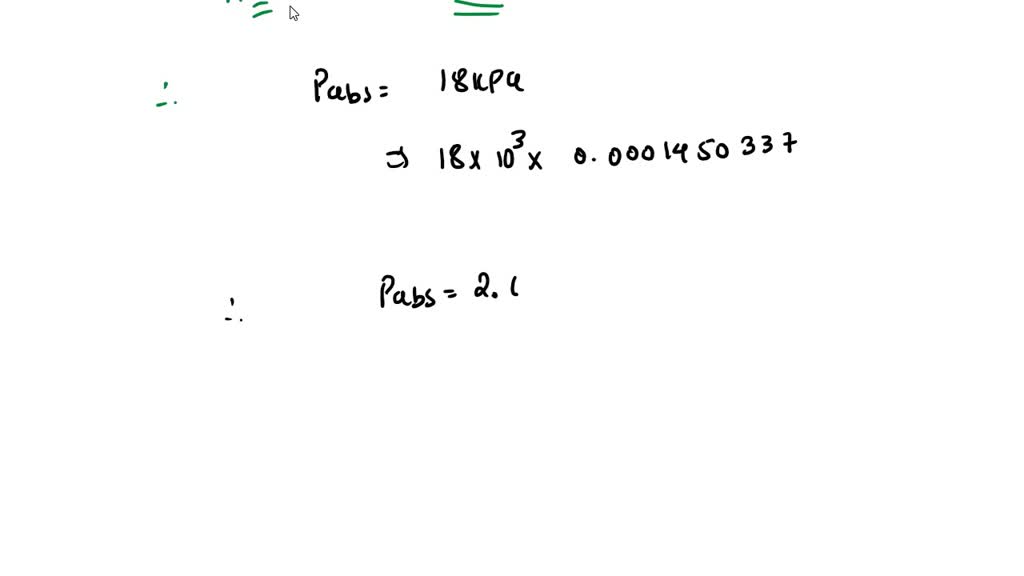 ∴ Pabs = 18kpa
⇒ 18 x 10³ x 0.0001450337
∴ Pabs = 2.